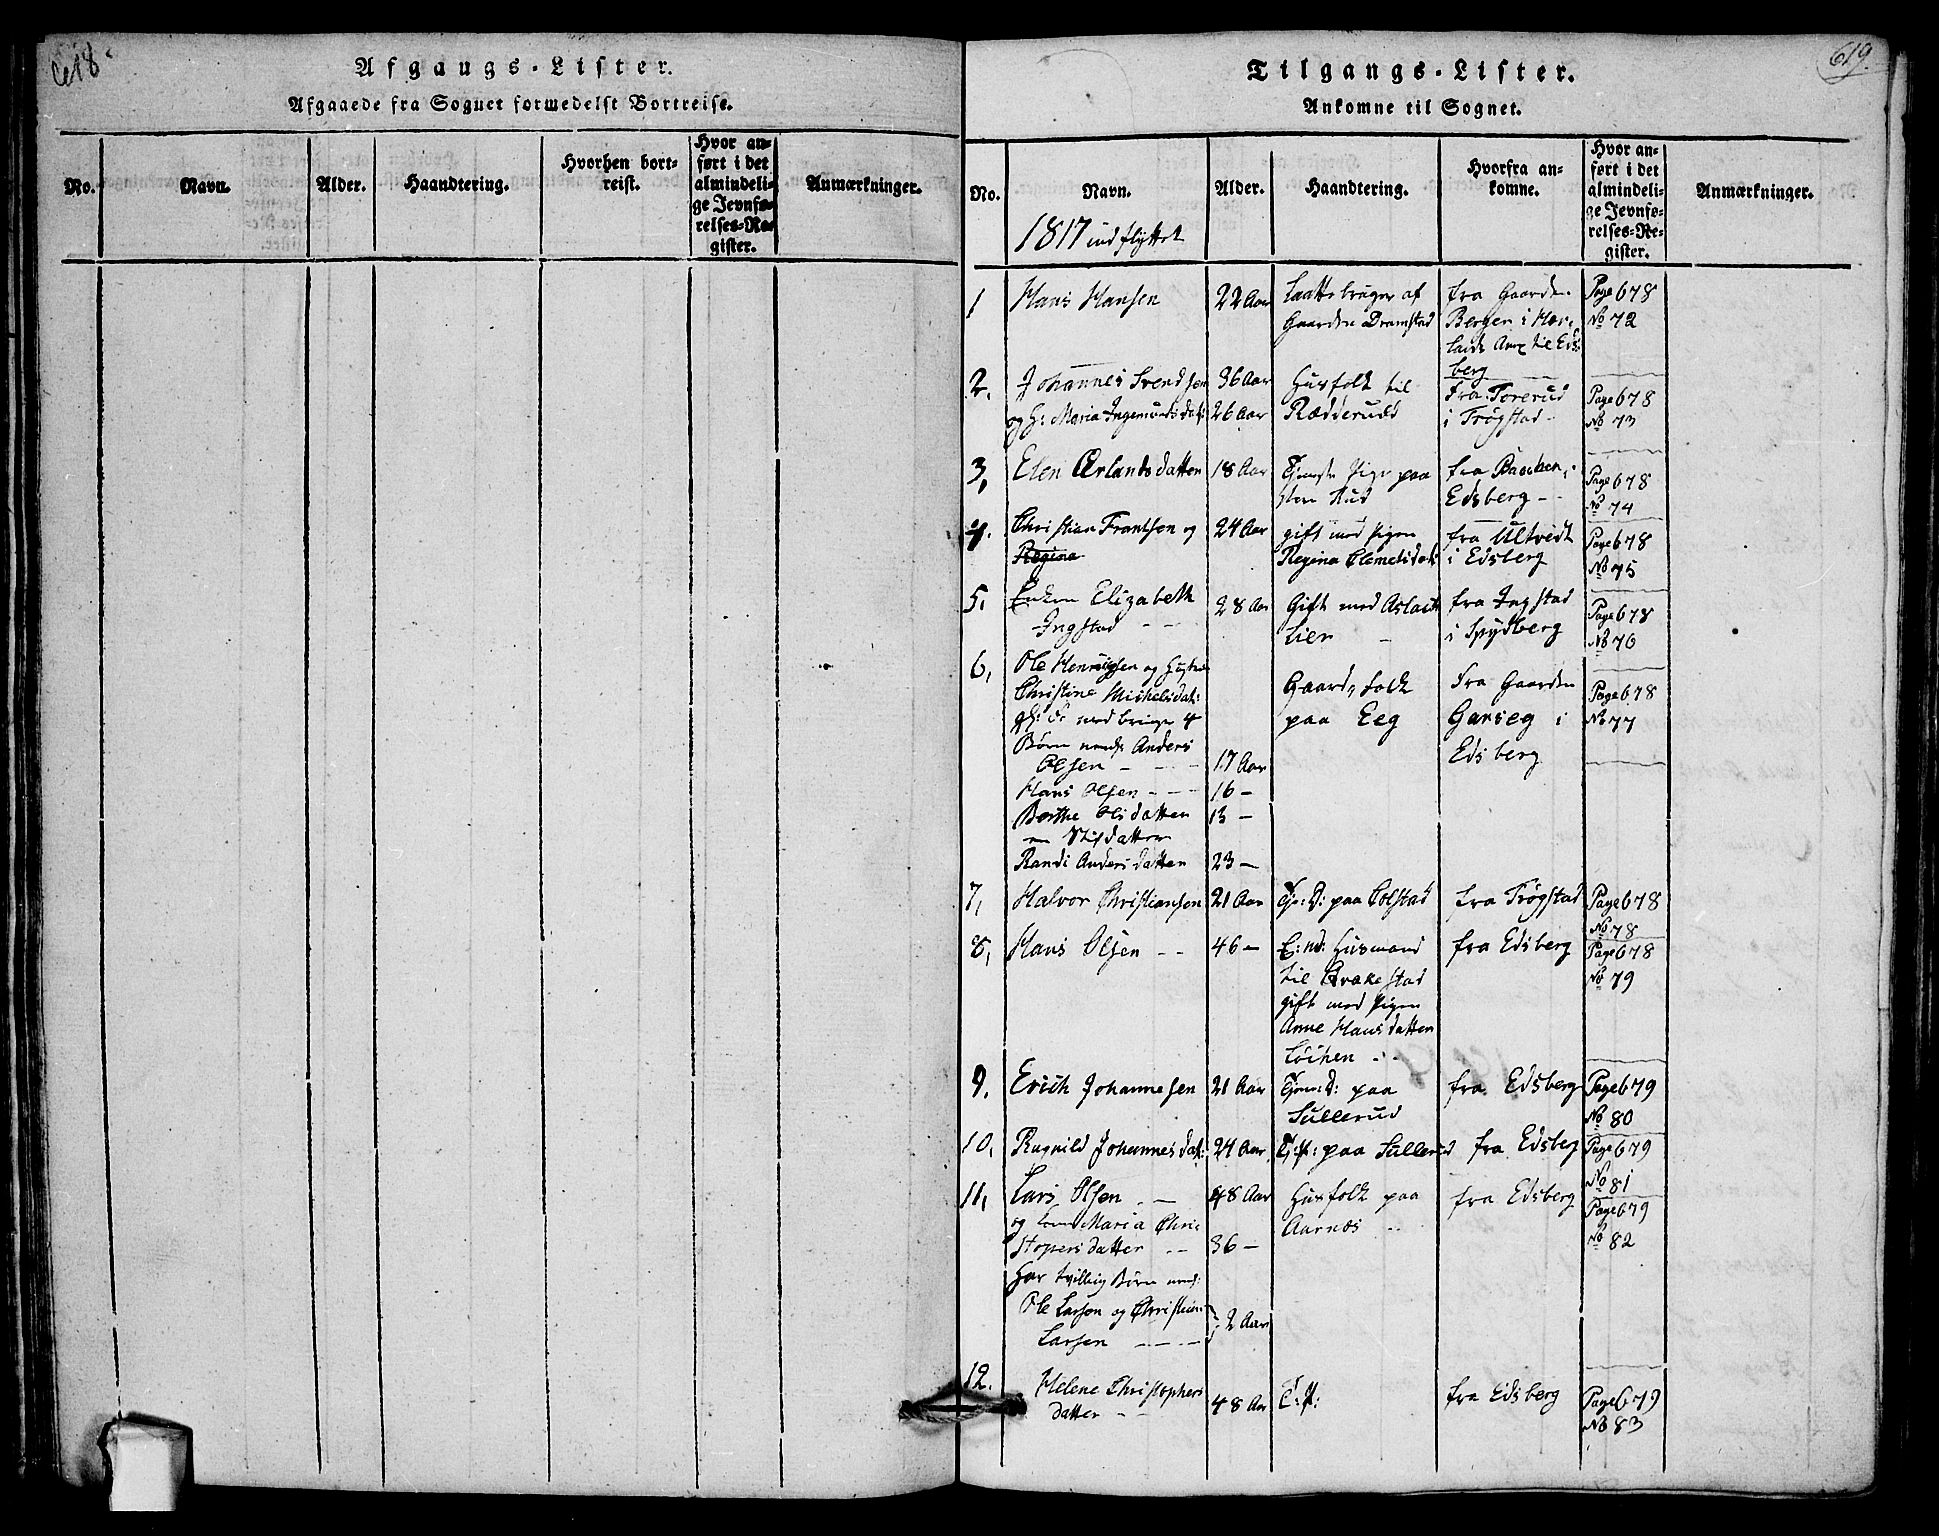 618
Afgangs-Lister.
Afgaaede fra Sognet formedelst Bortreise.
No.
Navn.
Alder.
Haandtering.
Hvorhen bort-
reist.
Hvor an-
ført i det
almindeli-
ge Jevnfø-
relses-Re-
gister.
Anmærkninger.
619.
Tilgangs-Lister.
Ankomne til Sognet.
No.
Navn.
Alder.
Haandtering.
Hvorfra an-
komne.
Hvor an-
ført i det
almindeli-
ge Jevnfø-
relses-Re-
gister.
Anmærkninger.
1817 indflyttet
1 Hans Hansen 22 Aar af fra Gaarden Page 678
Gaarden Dramstad Bergen i No 72
til Eds
berg
2. Johannes Svendsen 36 Aar Husfolk til fra Torerud Page 678
og H: Maria Ingemundsdat: 26 Aar Rædderud i Trøgstad No 73
3, Elen Erlandsdatter 18 Aar Pige paa fra Page 678
Rud Edsberg No 74
4. Christian Frantsen og 24 Aar gift med Pigen fra Ultvedt Page 678
Regina Regina Clemetsdat: i Edsberg No 75
5. Enken Elizabeth 28 Aar Gift med Aslack fra Ingstad Page 678
Ingstad Lier i Spydberg No 76
6, Ole og Hustru Gaard, folk fra Gaarden Page 678
Christine Michelsdat: paa Eeg Garseg i No 77
med bringer 4 Edsberg
Børn Anders
Olsen 17 Aar
Hans Olsen 16 -
Berthe Olsdatter 13 -
Randi Andersdatter 23 -
7, Halvor Christiansen 21 Aar Tje: D: paa Colstad fra Trøgstad Page 678
No 78
8, Hans Olsen 46 - Husmand fra Edsberg Page 678
til Brakestad No 79
gift med Pigen
Anne Hansdatter
Löchen
9. Erich Johannesen 21 Aar Tjen: D: paa fra Edsberg Page 679
Sullerud No 80
10. Ragnild Johannesdat: 24 Aar T: P: paa Sullerud fra Edsberg Page 679
No 81
11, Lars Olsen 48 Aar Husfolk paa fra Edsberg Page 679
og Maria Chri Aarnæs No 82
stopersdatter 36 -
har tvilling Børn
Ole Larsen og Christian
Larsen 2 Aar
12. Helene Christophers fra Edsberg Page 679
datter 48 Aar T: P: No 83